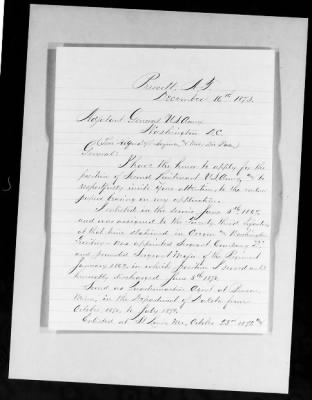 Prescott, A.T.
December 16th 1873.
Adjutant General U.S. Army
Washington D.C.
General:
I have the honor to apply for the
position of Second Lieutenant U.S. Army and to
respectfully invite your attention to the various
papers bearing on my application.
I enlisted in the service June 5th 1867
and was assigned to the Twenty Third Infantry
at that time stationed in Oregon and Washington
Territory was appointed Sergeant Company
and promoted Sergeant Major of the Regiment
January 1868, in which position I served until
honorably discharged June 5th 1870.
Served as Quartermaster Clerk at
in the Department of Dakota from
October 1870, to July 1872.
Enlisted at St Louis Mo, October 23rd 1872